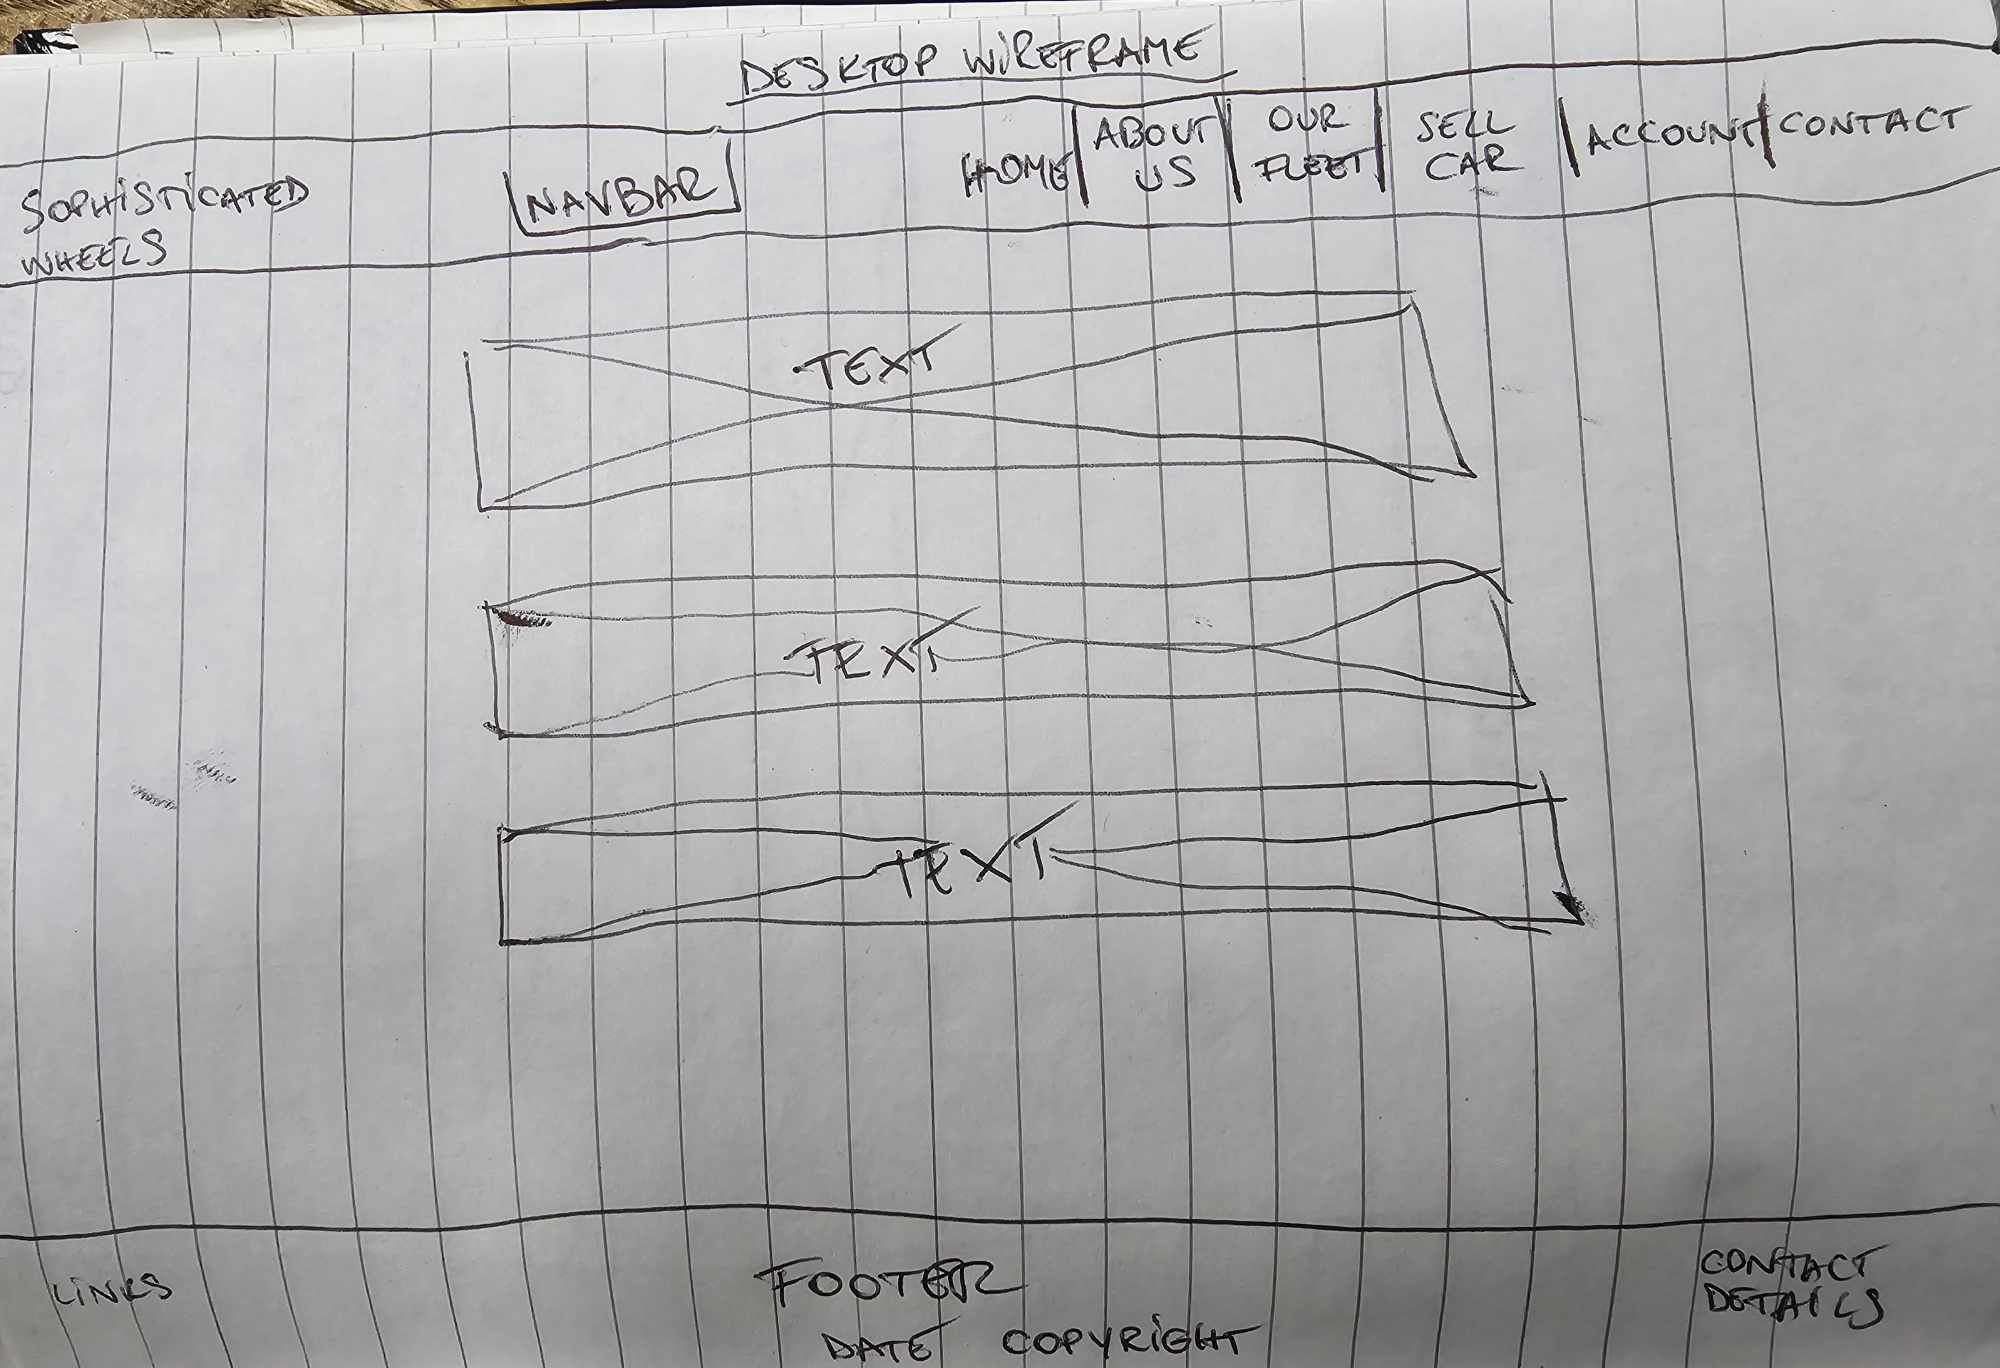 DESKTOP WIREFRAME
SOPHISTICATED
WHEELS
NAVBAR
HOME
ABOUT
US
OUR
FLEET
SELL
CAR
ACCOUNT
CONTACT
TEXT
TEXT
TEXT
LINKS
FOOTER
DATE COPYRIGHT
CONTACT
DETAILS